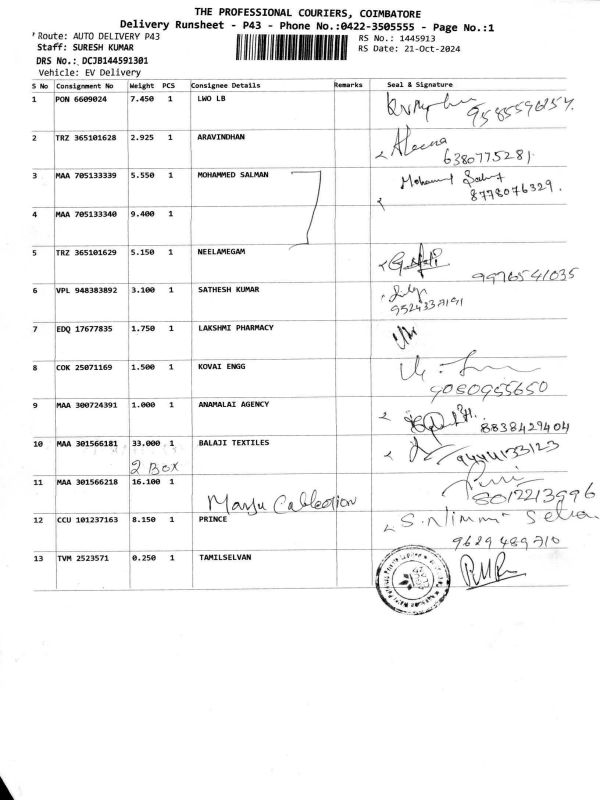 THE PROFESSIONAL COURIERS, COIMBATORE
Delivery Runsheet - P43 - Phone No.:0422-3505555 - Page No.:1
Route: AUTO DELIVERY P43
RS No.: 1445913
Staff: SURESH KUMAR
RS Date: 21-Oct-2024
DRS No.: DCJB144591301
Vehicle: EV Delivery
S No Consignment No Weight PCS Consignee Details Remarks Seal & Signature
1 PON 6609024 7.450 1 LWO LB
2 TRZ 365101628 2.925 1 ARAVINDHAN
6380775281
3 MAA 705133339 5.550 1 MOHAMMED SALMAN Mohamed
8778076329.
4 MAA 705133340 9.400 1
5 TRZ 365101629 5.150 1 NEELAMEGAM
9976541035
6 VPL 948383892 3.100 1 SATHESH KUMAR
7 EDQ 17677835 1.750 1 LAKSHMI PHARMACY
8 COK 25071169 1.500 1 KOVAI ENGG
9080955650
9 MAA 300724391 1.000 1 ANAMALAI AGENCY
8838429404
10 MAA 301566181 33.000 1 BALAJI TEXTILES
9444133123
2 BOX
11 MAA 301566218 16.100 1
8012213996
Manju Collection
12 CCU 101237163 8.150 1 PRINCE
9629489710
13 TVM 2523571 0.250 1 TAMILSELVAN